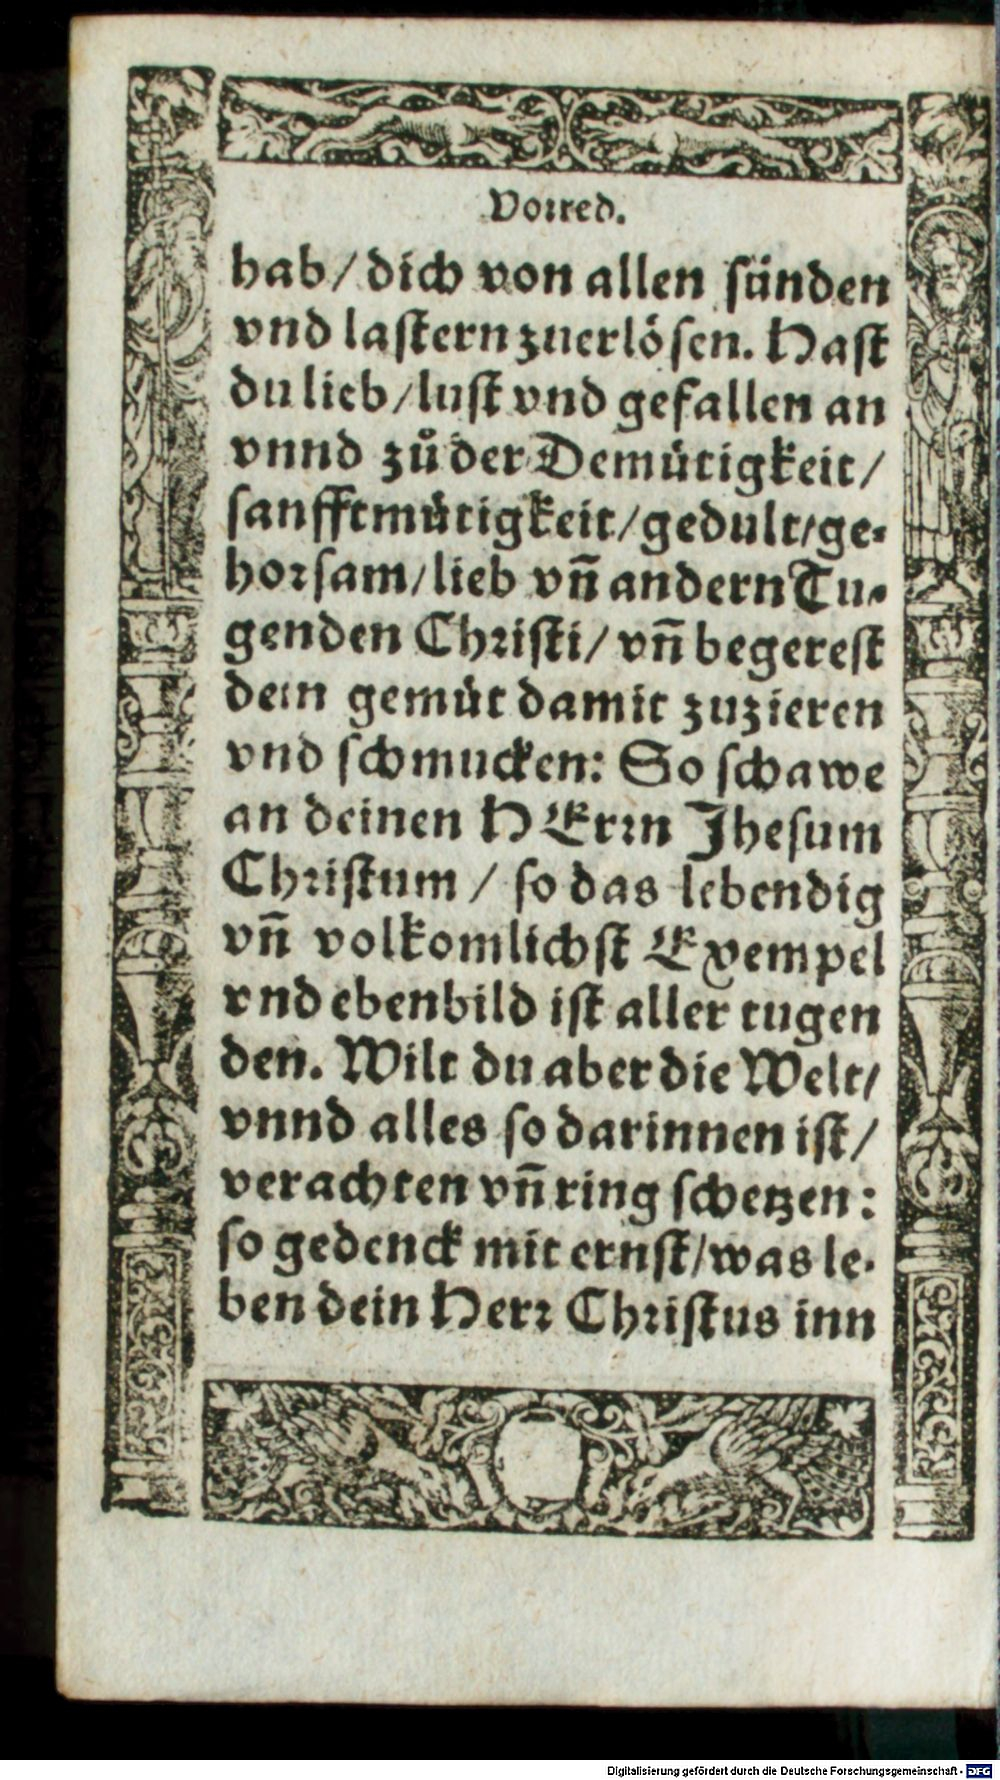 Vorred.
hab/ dich von allen sünden
vnd lastern zuerlösen. Hast
du lieb/ lust vnd gefallen an
vnnd zuͦ der Demütigkeit/
sanfftmütigkeit/ gedult/ ge-
horsam/ lieb vñ andern Tu-
genden Christi/ vñ begerest
dein gemüt damit zuzieren
vnd schmucken: So schawe
an deinen HErrn Jhesum
Christum/ so das lebendig
vñ volkomlichst Exempel
vnd ebenbild ist aller tugen
den. Wilt du aber die Welt/
vnnd alles so darinnen ist/
verachten vñ ring schetzen:
so gedenck mit ernst/ was le-
ben dein Herr Christus inn
Digitalisierung gefördert durch die Deutsche Forschungsgemeinschaft - DFG